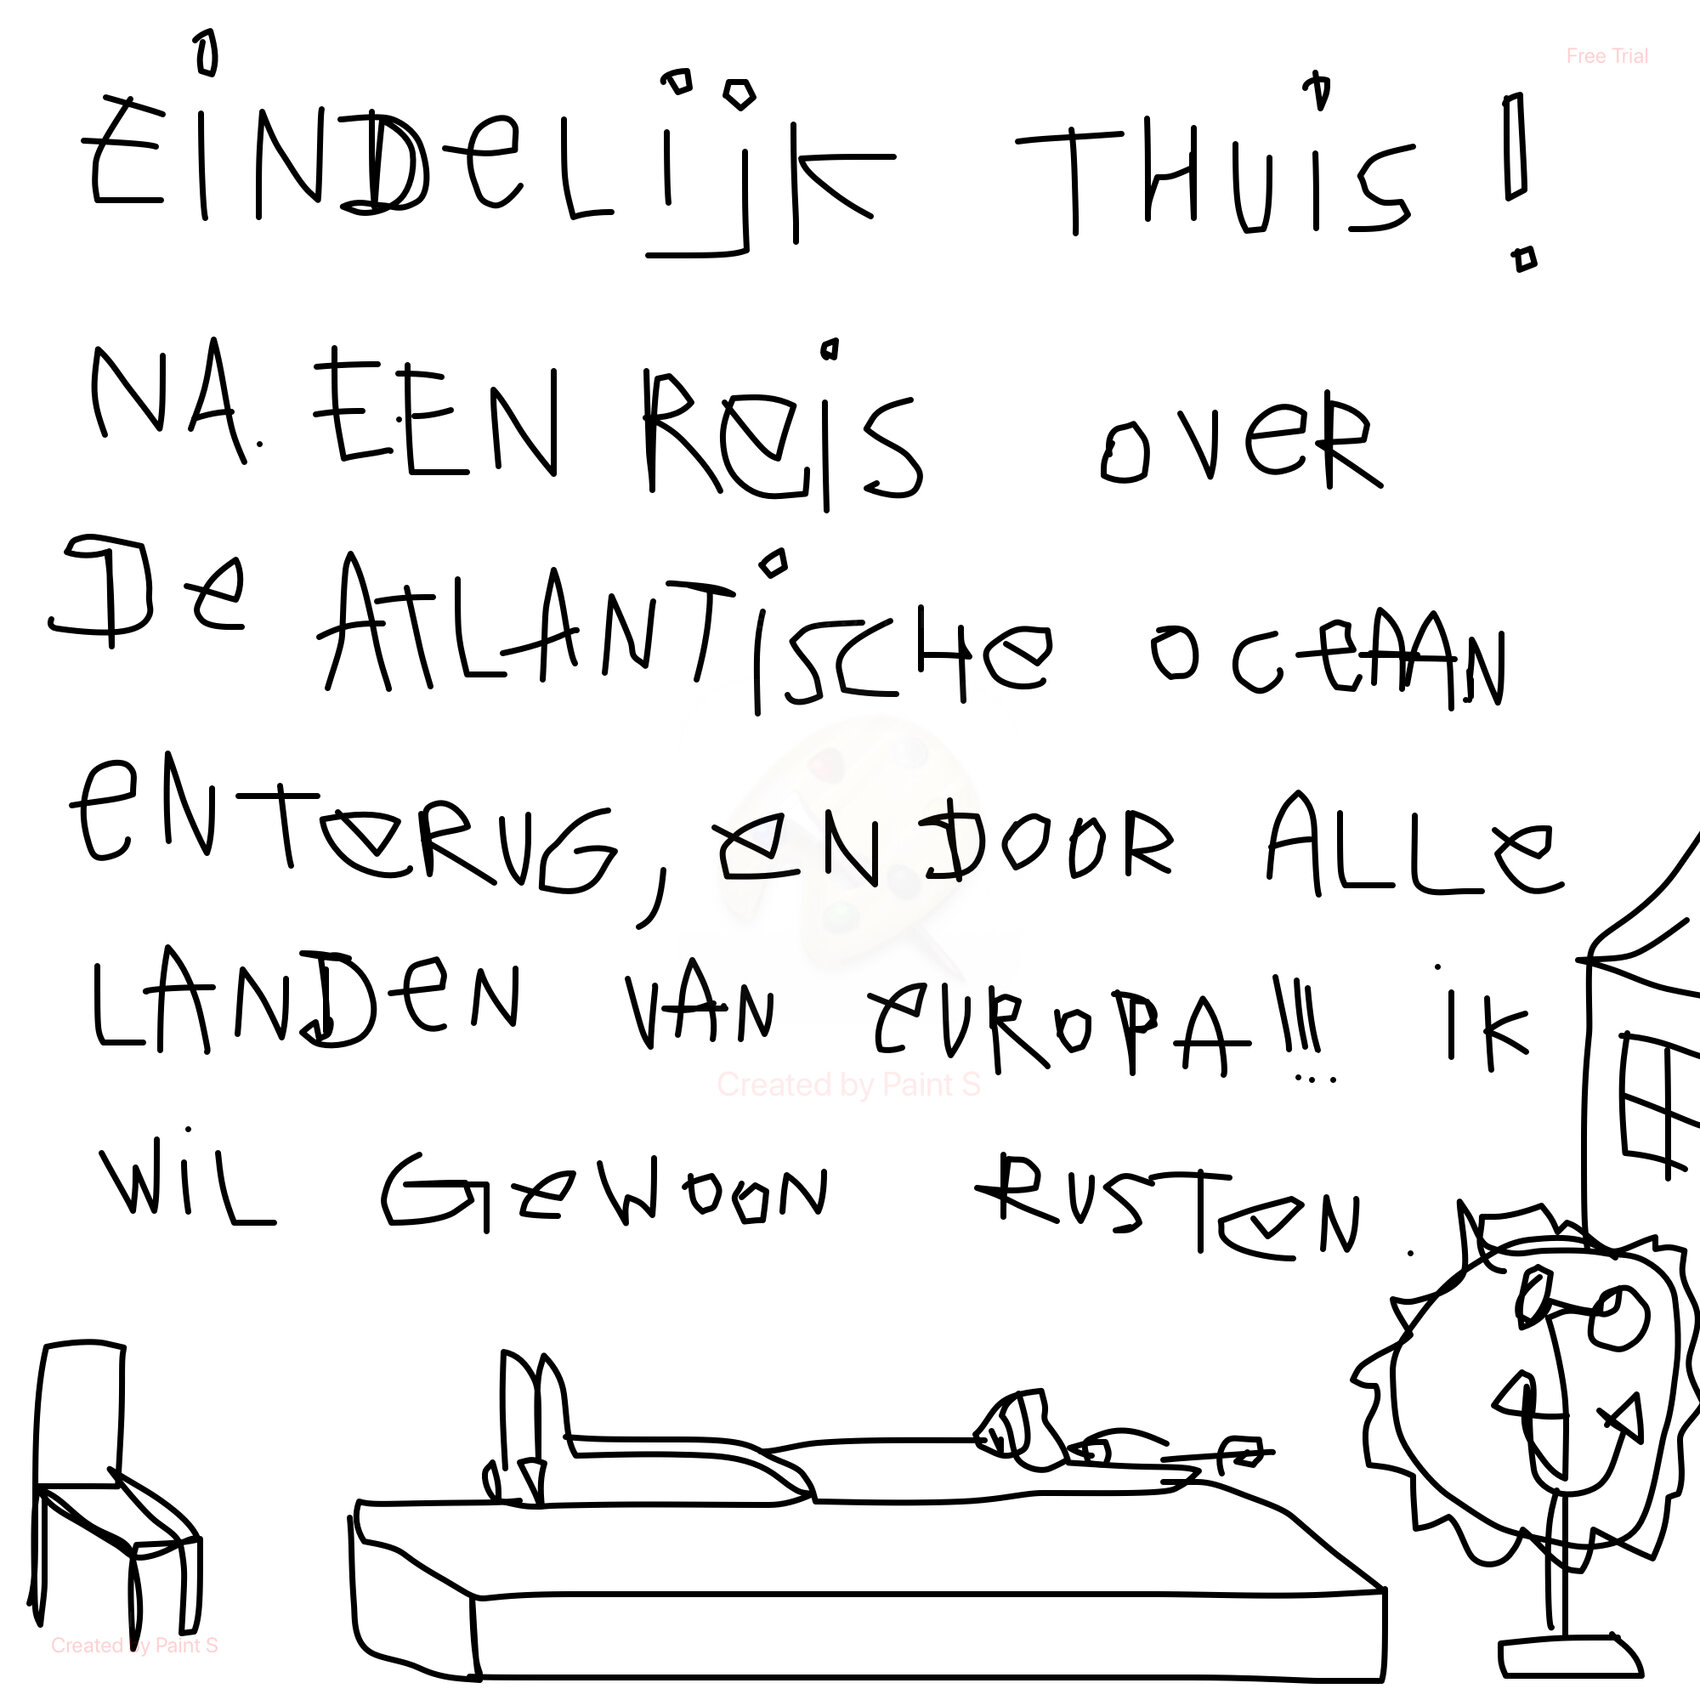 Free Trial
EiNDeLijK THUiS !
NA. EEN ReiS oVeR
De ATLANTiSCHe OCeAAN
eNTeRUG, eNDOOR ALLe
LANDeN VAN eURoPA!!! iK
WiL GeWOON RUSTeN.
Created by Paint S
Created by Paint S